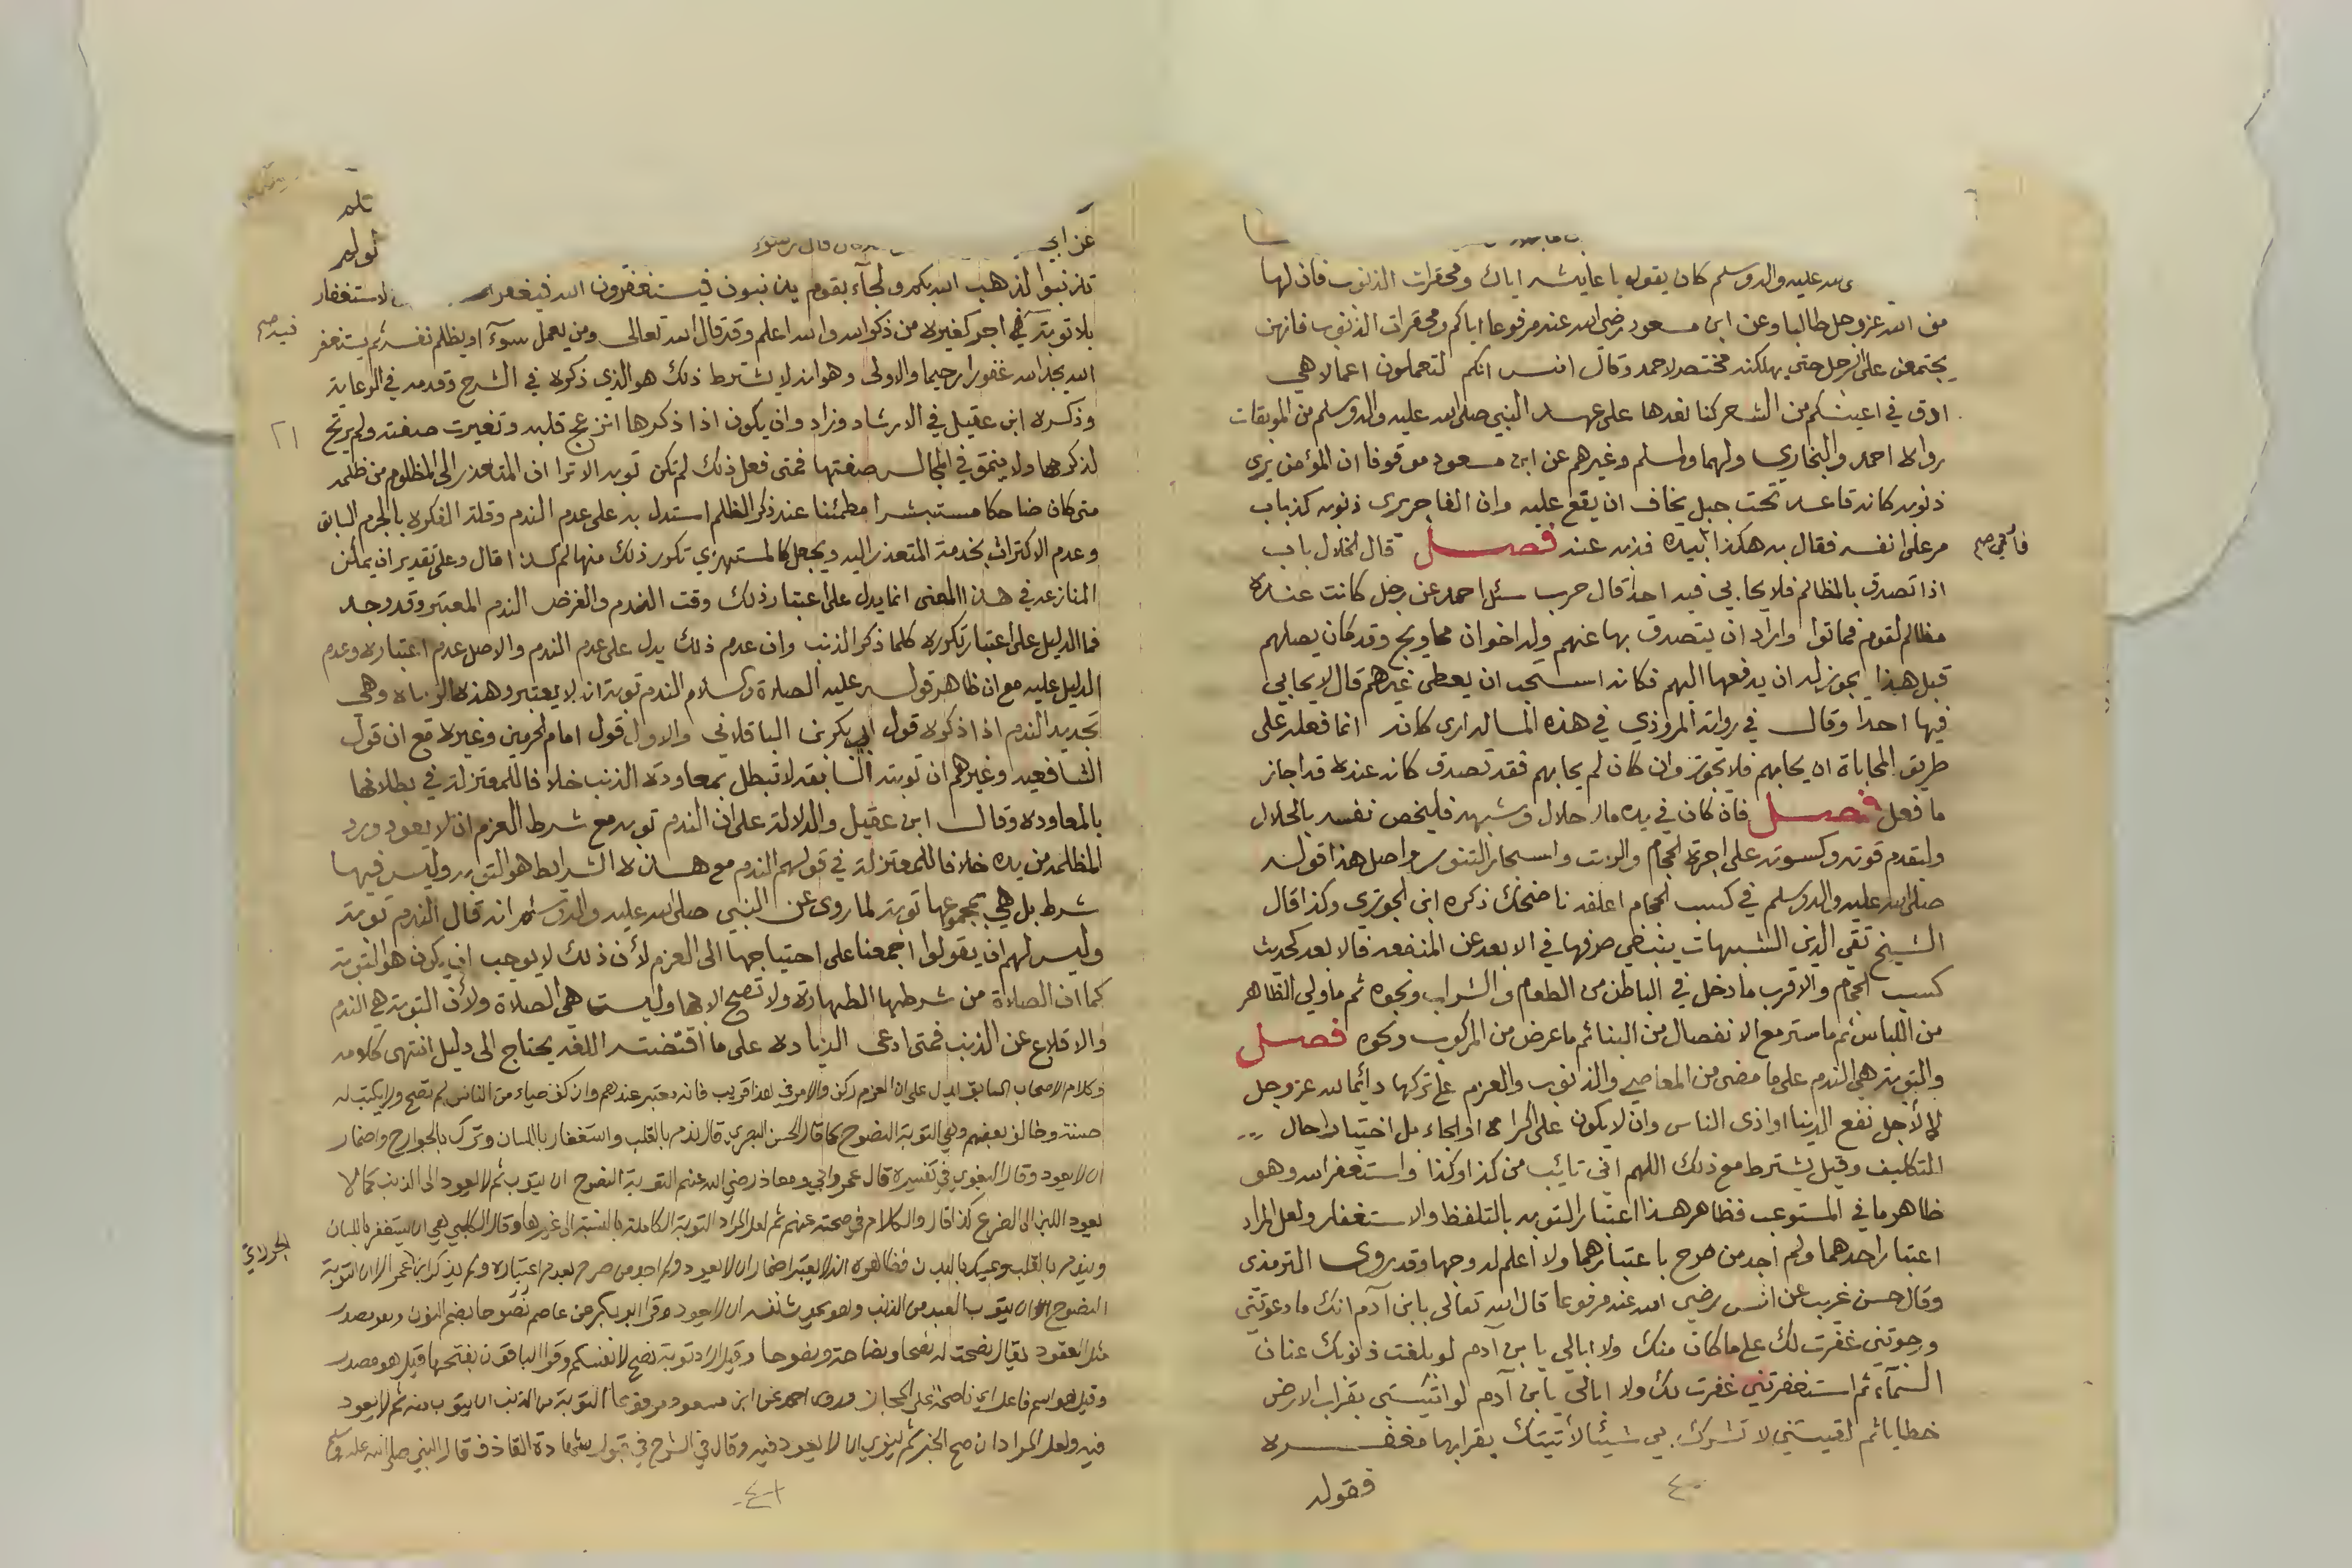 صلى الله عليه واله وسلم كان يقول يا عايشه اياك ومحقرات الذنوب فان لها
من الله عز وجل طالبا وعن ابن مسعود رضي الله عنه مرفوعا اياكم ومحقرات الذنوب فانهن
يجتمعن على الرجل حتى يهلكنه مختصر لاحمد وقال انس انكم لتعملون اعمالا هي
ادق في اعينكم من الشعر كنا نعدها على عهد النبي صلى الله عليه واله وسلم من الموبقات
رواه احمد والبخاري ولهما ولمسلم وغيرهم عن ابن مسعود موقوفا ان المؤمن يرى
ذنوبه كانه قاعد تحت جبل يخاف ان يقع عليه وان الفاجر يرى ذنوبه كذباب
مر على انفه فقال به هكذا بيده فذبه عنه فصل قال الخلال باب
اذا تصدق بالمظالم فلا يحابي فيه احدا قال حرب سئل احمد عن رجل كانت عنده
مظالم لقوم فماتوا واراد ان يتصدق بها عنهم وله اخوان محاويج وقد كان يصلهم
قبل هذا يجوز له ان يدفعها اليهم فكانه استحب ان يعطى غيرهم قال لا يحابي
فيها احدا وقال في رواية المروذي في هذه المسالة ارى كانه انما فعله على
طريق المحاباة ان يحابهم فلا يجوز وان كان لم يحابهم فقد تصدق كانه عنده قد اجاز
ما فعل فصل فان كان في يده مال حلال وشبهة فليخص نفسه بالحلال
وليقدم قوته وكسوته على اجرة الحجام والزيت واسجار التنور واصل هذا قوله
صلى الله عليه واله وسلم في كسب الحجام اعلفه ناضحك ذكره ابن الجوزي وكذا قال
الشيخ تقي الدين الشبهات ينبغي صرفها في الابعد عن المنفعه فالابعد كحديث
كسب الحجام والاقرب ما دخل في الباطن من الطعام والشراب ونحوه ثم ما ولي الظاهر
من اللباس ثم ما ستر مع الانفصال من البنا ثم ما عرض من المركوب ونحوه فصل
والتوبة هي الندم على ما مضى من المعاصي والذنوب والعزم على تركها دائما لله عز وجل
لا لاجل نفع الدينا او اذى الناس وان لا يكون على اكراه او الجاء بل اختيارا حال
التكليف وقيل يشترط مع ذلك اللهم اني تائب من كذا وكذا واستغفر الله وهو
ظاهر ما في المستوعب فظاهر هذا اعتبار التوبه بالتلفظ والاستغفار ولعل المراد
اعتبار احدهما ولم اجد من صرح باعتبارهما ولا اعلم له وجها وقد روى الترمذي
وقال حسن غريب عن انس رضي الله عنه مرفوعا قال الله تعالى يا بن آدم انك ما دعوتني
ورجوتني غفرت لك على ما كان منك ولا ابالي يا بن آدم لو بلغت ذنوبك عنان
السماء ثم استغفرتني غفرت لك ولا ابالي يا بن آدم لو اتيتني بقراب الارض
خطايا ثم لقيتني لا تشرك بي شيئا لأتيتك بقرابها مغفره
فقوله
٤٠
عن ابي قال رسول
تذنبوا لذهب الله بكم ولجآء بقوم يذنبون فيستغفرون الله فيغفر لاستغفار
بلا توبة فيه اجر كغيره من ذكر الله والله اعلم وقد قال الله تعالى ومن يعمل سوءا او يظلم نفسه ثم يستغفر
الله يجد الله غفورا رحيما والاولى وهو انه لا يشترط ذلك هو الذي ذكره في الشرح وقدمه في الرعاية
وذكره ابن عقيل في الارشاد وزاد وان يكون اذا ذكرها انزعج قلبه وتغيرت صفته ولم يرتح
لذكرها ولا ينمق في المجالس صفتها فمتى فعل ذلك لم تكن توبه الا ترا ان المتعذر الى المظلوم من ظلمه
متى كان ضاحكا مستبشرا مطمئنا عند ذكر الظلم استدل به على عدم الندم وقلة الفكره بالجرم السابق
وعدم الاكتراث بخدمة المتعذر اليه ويجعل كالمستهزي تكرر ذلك منها لم كذا قال وعلى تقدير ان يمكن
المنازعه في هذا المعنى انما يدل على اعتبار ذلك وقت الندم والغرض الندم المعتبر وقد وجد
فما الدليل على اعتبار تكرره كلما ذكر الذنب وان عدم ذلك يدل على عدم الندم والاصل عدم اعتباره وعدم
الدليل عليه مع ان ظاهر قوله عليه الصلاة والسلام الندم توبة ان لا يعتبر وهذه الزياده وهي
تجديد الندم اذا ذكره قول ابي بكر بن الباقلاني والاول قول امام الحرمين وغيره مع ان قول
الشافعيه وغيرهم ان توبته السابقه لا تبطل بمعاودة الذنب خلافا للمعتزلة في بطلانها
بالمعاوده وقال ابن عقيل والدلالة على ان الندم توبه مع شرط العزم ان لا يعود ورد
المظلمه من يده خلافا للمعتزلة في قولهم الندم مع هذه الشرايط هو التوبه وليس فيها
شرط بل هي بمجموعها توبة لما روي عن النبي صلى الله عليه واله وسلم انه قال الندم توبة
وليس لهم ان يقولوا اجمعنا على احتياجها الى العزم لأن ذلك لا يوجب ان يكون هو التوبة
كما ان الصلاة من شرطها الطهارة ولا تصح الا بها وليست هي الصلاة ولأن التوبة هي الندم
والاقلاع عن الذنب فمتى ادعى الزياده على ما اقتضته اللغه يحتاج الى دليل انتهى كلامه
وكلام الاصحاب السابق يدل على ان العزم ركن والامر في هذا قريب فانه معتبر عندهم وان كف حياء من الناس لم تصح ولا يكتب له
حسنة وخالف بعضهم وهي التوبة النصوح كما قال الحسن البصري قال ندم بالقلب واستغفار باللسان وترك بالجوارح واضمار
ان لا يعود وقال البغوي في تفسيره قال عمر وابي ومعاذ رضي الله عنهم التوبة النصوح ان يتوب ثم لا يعود الى الذنب كما لا
يعود اللبن الى الضرع كذا قال والكلام في صحته عنهم ثم لعل المراد التوبة الكاملة بالنسبة الى غيرها وقال الكلبي هي ان يستغفر باللسان
ويندم بالقلب ويمسك بالبدن فظاهره انه لا يعتبر اضمار ان لا يعود ولم اجد من صرح بعدم اعتباره ولم يذكر ابن عمر الا ان التوبة
النصوح ان يتوب العبد من الذنب وهو يحدث نفسه ان لا يعود وقرا ابو بكر عن عاصم نصوحا بضم النون وهو مصدر
مثل القعود يقال نصحت له نصحا ونصاحة ونصوحا وقيل اراد توبة نصح لانفسكم وقرا الباقون بفتحها قيل هو مصدر
وقيل هو اسم فاعل اي ناصحة على المجاز وروى احمد عن ابن مسعود مرفوعا التوبة من الذنب ان يتوب منه ثم لا يعود
فيه ولعل المراد ان صح الخبر ثم ينوي ان لا يعود فيه وقال في الشرح في قبول شهادة القاذف قال النبي صلى الله عليه وسلم
٤١